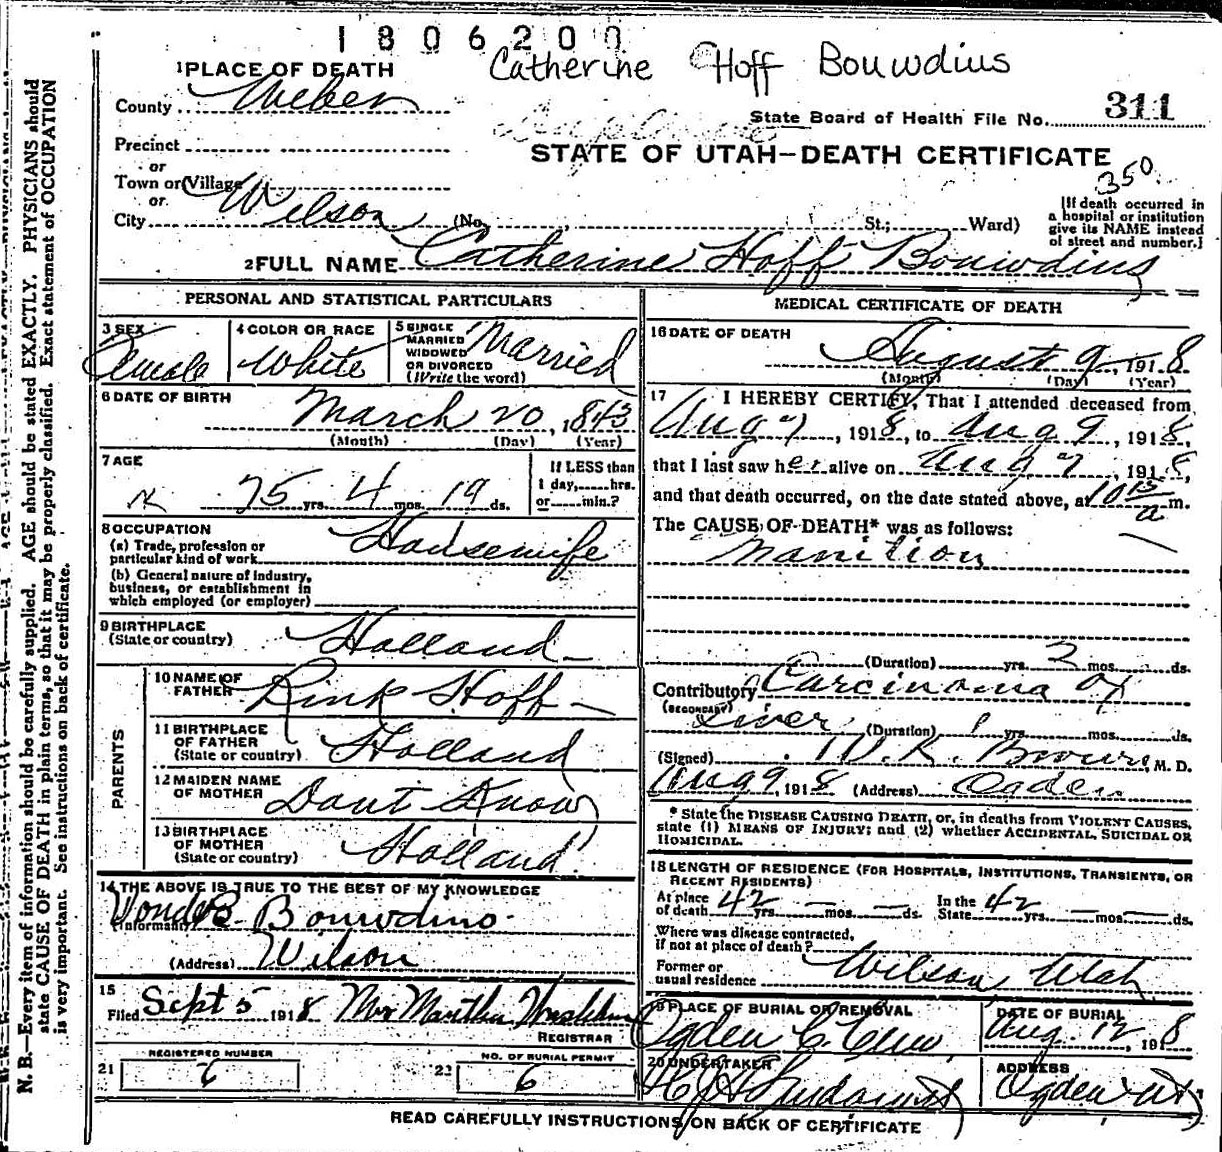 1806200
Catherine Hoff Bouwdius
1 PLACE OF DEATH
County Weber
State Board of Health File No. 311
Precinct
or
Town or Village
or
City Wilson (No. St.; Ward)
STATE OF UTAH—DEATH CERTIFICATE
350.
[If death occurred in
a hospital or institution
give its NAME instead
of street and number.]
2 FULL NAME Catherine Hoff Bouwdius
PERSONAL AND STATISTICAL PARTICULARS
3 SEX Female
4 COLOR OR RACE White
5 SINGLE
MARRIED
WIDOWED
OR DIVORCED
(Write the word) Married
6 DATE OF BIRTH
March 20, 1843
(Month) (Day) (Year)
7 AGE
75 yrs. 4 mos. 19 ds.
If LESS than
1 day, hrs.
or min.?
8 OCCUPATION
(a) Trade, profession or
particular kind of work Housewife
(b) General nature of industry,
business, or establishment in
which employed (or employer)
9 BIRTHPLACE
(State or country) Holland
PARENTS
10 NAME OF
FATHER Rink Hoff
11 BIRTHPLACE
OF FATHER
(State or country) Holland
12 MAIDEN NAME
OF MOTHER Dont Know
13 BIRTHPLACE
OF MOTHER
(State or country) Holland
14 THE ABOVE IS TRUE TO THE BEST OF MY KNOWLEDGE
(Informant) B. Bouwdino
(Address) Wilson
15
Filed Sept 5 1918 Mrs Martha
REGISTRAR
21 REGISTERED NUMBER
6
22 NO. OF BURIAL PERMIT
6
MEDICAL CERTIFICATE OF DEATH
16 DATE OF DEATH
August 9, 1918
(Month) (Day) (Year)
17 I HEREBY CERTIFY, That I attended deceased from
Aug 7, 1918, to Aug 9, 1918,
that I last saw her alive on Aug 7, 1918,
and that death occurred, on the date stated above, at 10 15 a m.
The CAUSE OF DEATH* was as follows:
Inanition
(Duration) yrs. 2 mos. ds.
Contributory Carcinoma of
(SECONDARY) Liver (Duration) 1 yrs. mos. ds.
(Signed) W. R. Brown, M. D.
Aug 9, 1918 (Address) Ogden
* State the DISEASE CAUSING DEATH, or, in deaths from VIOLENT CAUSES,
state (1) MEANS OF INJURY; and (2) whether ACCIDENTAL, SUICIDAL OR
HOMICIDAL.
18 LENGTH OF RESIDENCE (FOR HOSPITALS, INSTITUTIONS, TRANSIENTS, OR
RECENT RESIDENTS)
At place
of death 42 yrs. — mos. — ds. In the
State 42 yrs. — mos. — ds.
Where was disease contracted,
if not at place of death?
Former or
usual residence Wilson Utah
19 PLACE OF BURIAL OR REMOVAL
Ogden C. Cem.
DATE OF BURIAL
Aug. 12, 1918
20 UNDERTAKER
ADDRESS
Ogden Ut
READ CAREFULLY INSTRUCTIONS ON BACK OF CERTIFICATE
N. B.—Every item of information should be carefully supplied. AGE should be stated EXACTLY. PHYSICIANS should
state CAUSE OF DEATH in plain terms, so that it may be properly classified. Exact statement of OCCUPATION
is very important. See instructions on back of certificate.